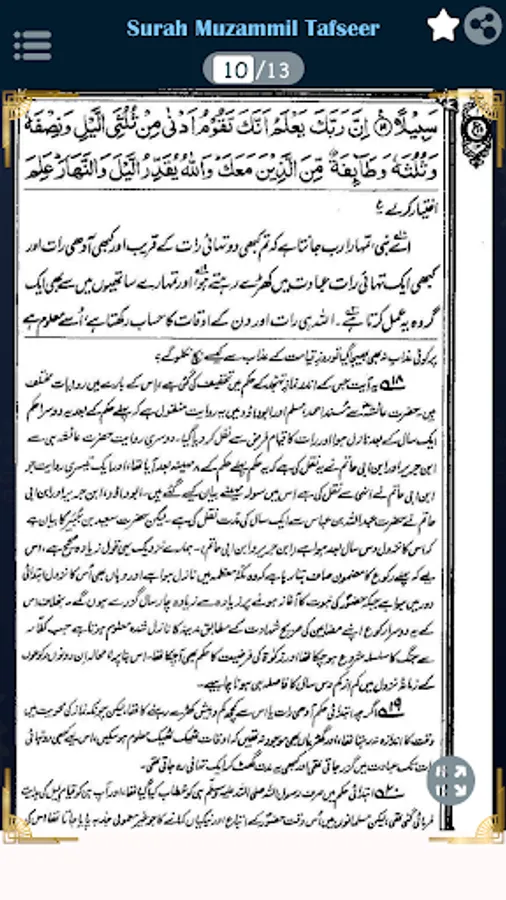 Surah Muzammil Tafseer
10/13
سَبِيلًا ۝ إِنَّ رَبَّكَ يَعْلَمُ أَنَّكَ تَقُومُ أَدْنَىٰ مِنْ ثُلُثَيِ الَّيْلِ وَنِصْفَهُ
وَثُلُثَهُ وَطَآئِفَةٌ مِّنَ الَّذِينَ مَعَكَ وَاللَّهُ يُقَدِّرُ الَّيْلَ وَالنَّهَارَ عَلِمَ
اختیار کرلے ؏
اے نبی، تمہارا رب جانتا ہے کہ تم کبھی دو تہائی رات کے قریب اور کبھی آدھی رات اور
کبھی ایک تہائی رات عبادت میں کھڑے رہتے ہو، اور تمہارے ساتھیوں میں سے بھی ایک
گروہ یہ عمل کرتا ہے۔ اللہ ہی رات اور دن کے اوقات کا حساب رکھتا ہے، اُسے معلوم ہے
پر کوئی عذاب نہ بھی بھیجا گیا تو روزِ قیامت کے عذاب سے کیسے بچ نکلو گے؟
۱۸ یہ آیت جس کے اندر نمازِ تہجد کے حکم میں تخفیف کی گئی ہے، اس کے بارے میں روایات مختلف
ہیں۔ حضرت عائشہؓ سے مُسند احمد، مسلم اور ابوداؤد میں یہ روایت منقول ہے کہ پہلے حکم کے بعد یہ دوسرا حکم
ایک سال کے بعد نازل ہوا اور رات کا قیام فرض سے نفل کر دیا گیا۔ دوسری روایت حضرت عائشہ ہی سے
ابن جریر اور ابن ابی حاتم نے یہ نقل کی ہے کہ یہ حکم پہلے حکم کے ۸ مہینہ بعد آیا تھا، اور ایک تیسری روایت جو
ابن ابی حاتم نے انہی سے نقل کی ہے اس میں سولہ مہینے بیان کیے گئے ہیں۔ ابوداؤد، ابن جریر اور ابن ابی
حاتم نے حضرت عبداللہ بن عباس سے ایک سال کی مدت نقل کی ہے۔ لیکن حضرت سعید بن جُبَیر کا بیان ہے
کہ اس کا نزول دس سال بعد ہوا ہے (ابن جریر و ابن ابی حاتم)۔ ہمارے نزدیک یہی قول زیادہ صحیح ہے، اس
لیے کہ پہلے رکوع کا مضمون صاف بتا رہا ہے کہ وہ مکۂ معظمہ میں نازل ہوا ہے اور وہاں بھی اُس کا نزول ابتدائی
دور میں ہوا ہے جبکہ حضورؐ کی نبوت کا آغاز ہونے پر زیادہ سے زیادہ چار سال گزرے ہوں گے۔ بخلاف اس
کے یہ دوسرا رکوع اپنے مضامین کی صریح شہادت کے مطابق مدینہ کا نازل شدہ معلوم ہوتا ہے جب کفار
سے جنگ کا سلسلہ شروع ہو چکا تھا اور زکوٰۃ کی فرضیت کا حکم بھی آ چکا تھا۔ اس بنا پر لا محالہ ان دونوں رکوعوں
کے زمانۂ نزول میں کم از کم دس سال کا فاصلہ ہی ہونا چاہیے۔
۱۹ اگرچہ ابتدائی حکم آدھی رات یا اس سے کچھ کم و بیش کھڑے رہنے کا تھا، لیکن چونکہ نماز کی محویت میں
وقت کا اندازہ نہ رہتا تھا، اور گھڑیاں بھی موجود نہ تھیں کہ اوقات ٹھیک ٹھیک معلوم ہو سکیں، اس لیے کبھی دو تہائی
رات تک عبادت میں گزر جاتی تھی اور کبھی یہ مدت گھٹ کر ایک تہائی رہ جاتی تھی۔
۲۰ ابتدائی حکم میں صرف رسول اللہ صلی اللہ علیہ وسلم ہی کو خطاب کیا گیا تھا، اور آپ ہی کو قیامِ لیل کی ہدایت
فرمائی گئی تھی، لیکن مسلمانوں میں اُس وقت حضورؐ کے اتباع اور نیکیاں کمانے کا جو غیر معمولی جذبہ پایا جاتا تھا اس کی